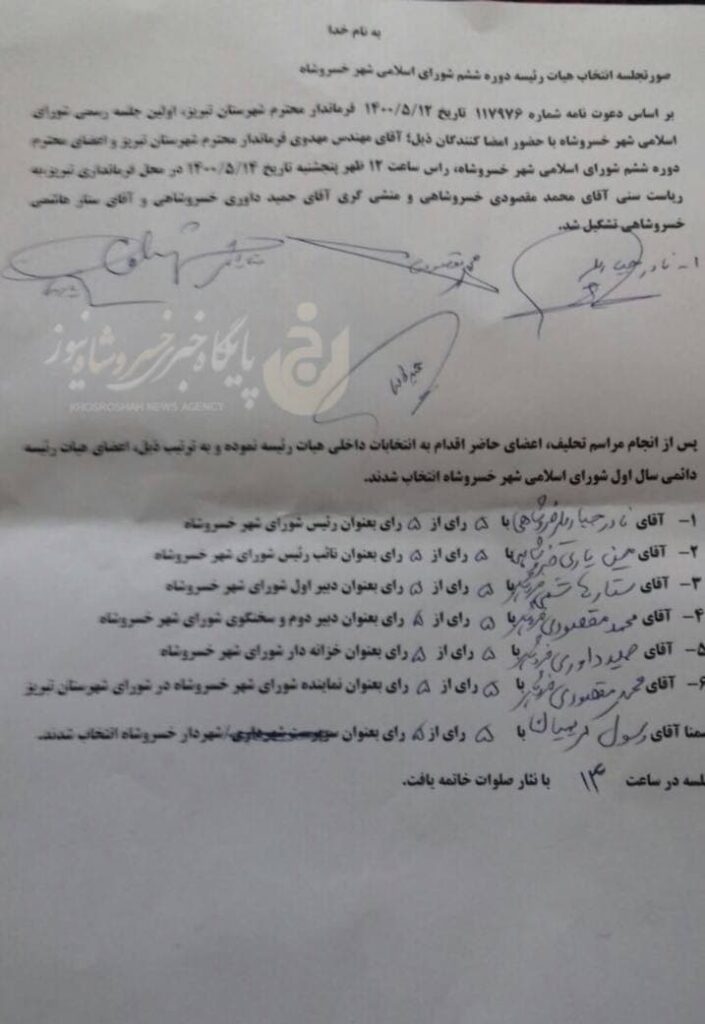 به نام خدا
صورتجلسه انتخاب هیات رئیسه دوره ششم شورای اسلامی شهر خسروشاه
بر اساس دعوت نامه شماره ۱۱۷۹۷۶ تاریخ ۱۴۰۰/۵/۱۲ فرماندار محترم شهرستان تبریز، اولین جلسه رسمی شورای
اسلامی شهر خسروشاه با حضور امضا کنندگان ذیل؛ آقای مهندس مهدوی فرماندار محترم شهرستان تبریز و اعضای محترم
دوره ششم شورای اسلامی شهر خسروشاه، راس ساعت ۱۲ ظهر پنجشنبه تاریخ ۱۴۰۰/۵/۱۴ در محل فرمانداری تبریز به
ریاست سنی آقای محمد مقصودی خسروشاهی و منشی گری آقای حمید داوری خسروشاهی و آقای ستار هاشمی
خسروشاهی تشکیل شد.
۱- نادر
پایگاه خبری خسروشاه نیوز
KHOSROSHAH NEWS AGENCY
پس از انجام مراسم تحلیف، اعضای حاضر اقدام به انتخابات داخلی هیات رئیسه نموده و به ترتیب ذیل، اعضای هیات رئیسه
دائمی سال اول شورای اسلامی شهر خسروشاه انتخاب شدند.
۱- آقای نادر با ۵ رای از ۵ رای بعنوان رئیس شورای شهر خسروشاه
۲- آقای با ۵ رای از ۵ رای بعنوان نائب رئیس شورای شهر خسروشاه
۳- آقای ستار هاشمی با ۵ رای از ۵ رای بعنوان دبیر اول شورای شهر خسروشاه
۴- آقای محمد مقصودی با ۵ رای از ۵ رای بعنوان دبیر دوم و سخنگوی شورای شهر خسروشاه
۵- آقای حمید داوری با ۵ رای از ۵ رای بعنوان خزانه دار شورای شهر خسروشاه
۶- آقای محمد مقصودی با ۵ رای از ۵ رای بعنوان نماینده شورای شهر خسروشاه در شورای شهرستان تبریز
ضمنا آقای رسول با ۵ رای از ۵ رای بعنوان سرپرست شهرداری/شهردار خسروشاه انتخاب شدند.
جلسه در ساعت ۱۳ با نثار صلوات خاتمه یافت.